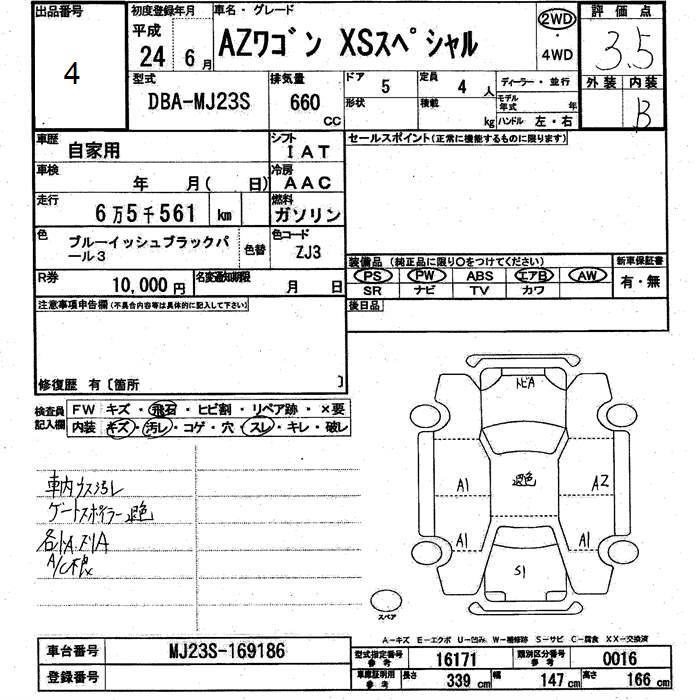 出品番号
4
初度登録年月
平成
24 6月
車名・グレード
AZワゴン XSスペシャル
2WD
・
4WD
評価点
3.5
外装 内装
B
型式
DBA-MJ23S
排気量
660
CC
ドア 5
形状
定員 4 人
積載 kg
ディーラー・並行
モデル年式 年
ハンドル 左・右
車歴
自家用
シフト
IAT
車検
年 月( 日)
冷房
AAC
走行
6万5千561 km
燃料
ガソリン
色
ブルーイッシュブラックパ
ール3
色替
色コード
ZJ3
R券
10,000円
名変通知期限
月 日
セールスポイント(正常に機能するものに限ります)
装備品(純正品に限り○をつけてください)
PS PW ABS エアB AW
SR ナビ TV カワ
新車保証書
有・無
後日品
注意事項申告欄(不具合内容等は具体的に記入して下さい)
修復歴 有〔箇所 〕
検査員
記入欄
FW キズ・飛石・ヒビ割・リペア跡・×要
内装 キズ・汚レ・コゲ・穴・スレ・キレ・破レ
車内ウス汚レ
ゲートスポイラー退色
A/C不良
トビA
退色
A1
A2
A1
A1
S1
スペア
A-キズ E-エクボ U-凹み W-補修跡 S-サビ C-腐食 XX-交換済
車台番号
MJ23S-169186
登録番号
型式指定番号
参考
16171
類別区分番号
参考
0016
車庫証明用
参考
長さ 339 cm 幅 147 cm 高さ 166 cm